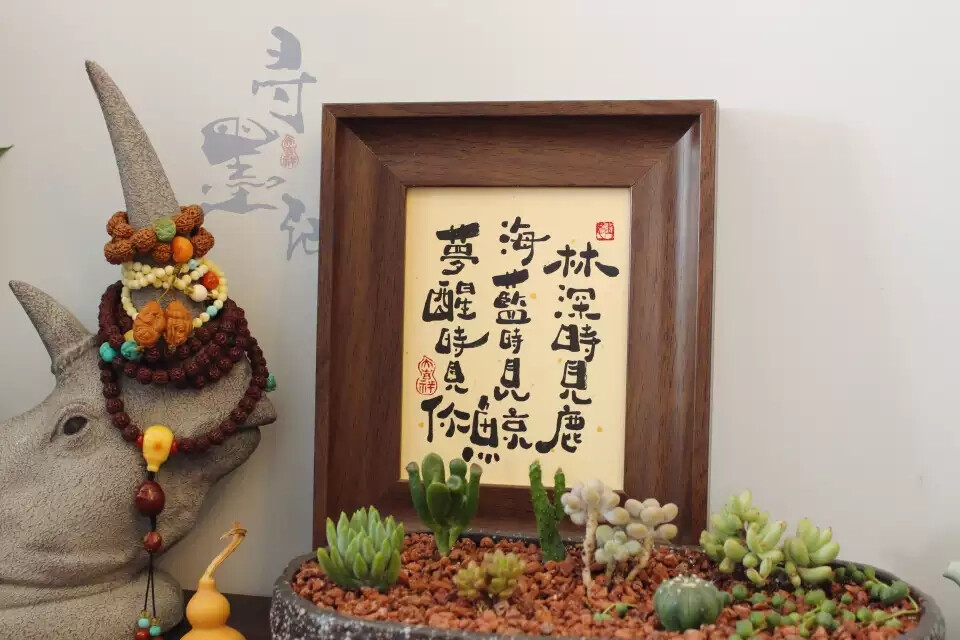 林深時見鹿
海藍時見鯨
夢醒時見你
尋墨记